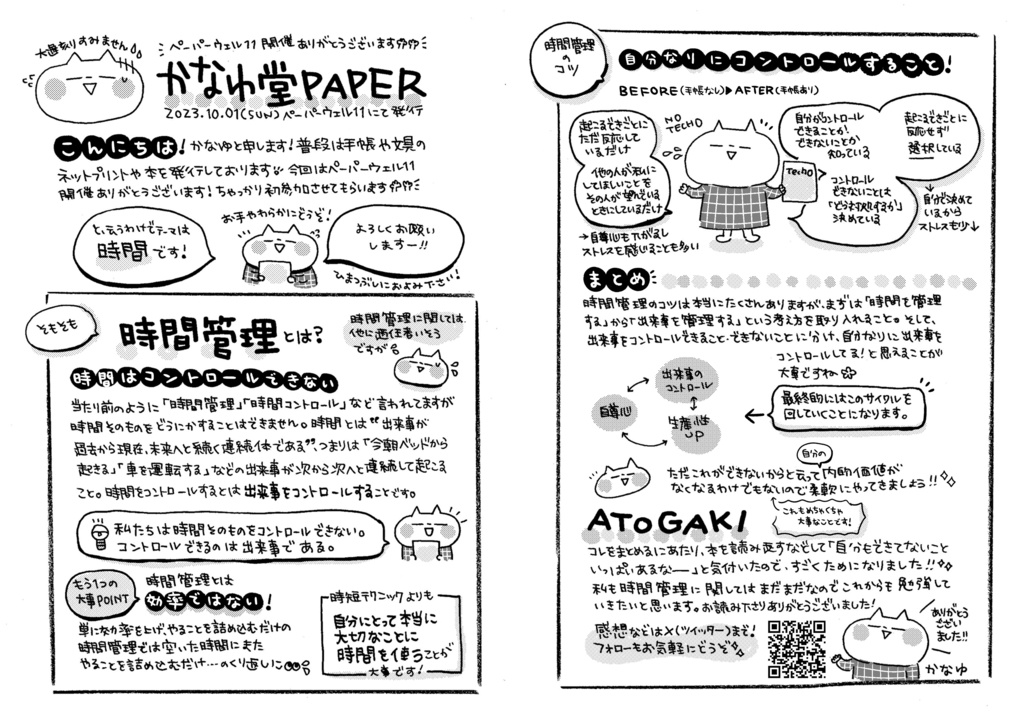 大遅刻すみません
ペーパーウェル11 開催ありがとうございます
かなゆ堂PAPER
2023.10.01(SUN) ペーパーウェル11にて発行
こんにちは! かなゆと申します!普段は手帳や文具の
ネットプリントや本を発行しております 今回はペーパーウェル11
開催ありがとうございます!ちゃっかり初参加させてもらいます
と、云うわけでテーマは
時間です!
お手やわらかにどうぞ!
よろしくお願い
しますー!!
ひまつぶしにおよみ下さい!
そもそも
時間管理とは?
時間管理に関しては
他に適任者いそう
ですが
時間はコントロールできない
当たり前のように「時間管理」「時間コントロール」など言われてますが
時間そのものをどうにかすることはできません。時間とは"出来事が
過去から現在、未来へと続く連続体である"、つまりは「今朝ベッドから
起きる」「車を運転する」などの出来事が次から次へと連続して起こる
こと。時間をコントロールするとは出来事をコントロールすることです。
私たちは時間そのものをコントロールできない。
コントロールできるのは出来事である。
もう1つの
大事POINT
時間管理とは
効率ではない!
単に効率を上げ、やることを詰め込むだけの
時間管理では空いた時間にまた
やることを詰め込むだけ…のくり返しに
時短テクニックよりも
自分にとって本当に
大切なことに
時間を使うことが
大事です!
時間管理
の
コツ
自分なりにコントロールすること!
BEFORE(手帳なし)▶AFTER(手帳あり)
起こるできごとに
ただ反応して
いるだけ
他の人が私に
してほしいことを
その人が望んでいる
ときにしているだけ
→自尊心も下がるし
ストレスを感じることも多い
NO
TECHO
TECHO
自分がコントロール
できることか、
できないことか
知っている
コントロール
できないことは
「どう対処するか」
決めている
起こるできごとに
反応せず
選択している
↓
自分で決めて
いるから
ストレスも少↓
まとめ
時間管理のコツは本当にたくさんありますが、まずは「時間を管理
する」から「出来事を管理する」という考え方を取り入れること。そして、
出来事をコントロールできること・できないことに分け、自分なりに出来事を
コントロールしてる!と思えることが
大事ですね
出来事の
コントロール
自尊心
生産性
UP
最終的にはこのサイクルを
回していくことになります。
ただこれができないからと云って自分の内的価値が
なくなるわけでもないので柔軟にやってきましょう!!
これもめちゃくちゃ
大事なことです!
ATOGAKI
コレをまとめるにあたり、本を読み返すなどして「自分もできてないこと
いっぱいあるなー」と気付いたので、すごくためになりました!!
私も時間管理に関してはまだまだなのでこれからも勉強して
いきたいと思います。お読み下さりありがとうございました!
感想などはX(ツイッター)まで!
フォローもお気軽にどうぞ
ありがとう
ござい
ました!!
かなゆ